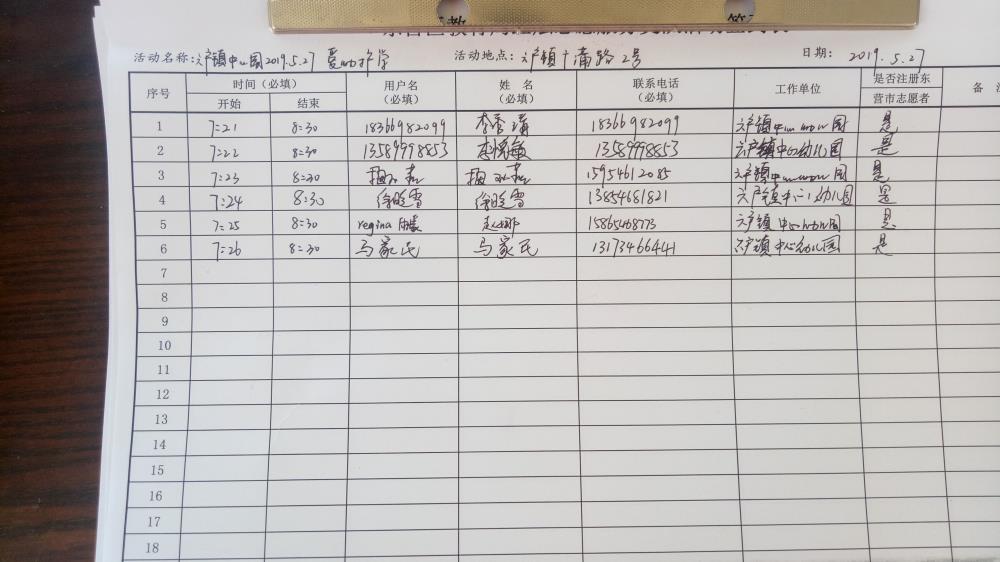 活动名称: 六户镇中心园2019.5.27 爱心护学 活动地点: 六户镇广蒲路2号 日期: 2019.5.27
序号 时间(必填) 用户名 姓名 联系电话 工作单位 是否注册东 备
开始 结束 (必填) (必填) (必填) 营市志愿者
1 7:21 8:30 18366982099 李秀靖 18366982099 六户镇中心幼儿园 是
2 7:22 8:30 13589998853 李悦敏 13589998853 六户镇中心幼儿园 是
3 7:23 8:30 15954612085 六户镇中心幼儿园 是
4 7:24 8:30 徐晓雪 徐晓雪 13854681821 六户镇中心幼儿园 是
5 7:25 8:30 regina 赵娜 15865468773 六户镇中心幼儿园 是
6 7:26 8:30 马家民 马家民 13173466441 六户镇中心幼儿园 是
7
8
9
10
11
12
13
14
15
16
17
18